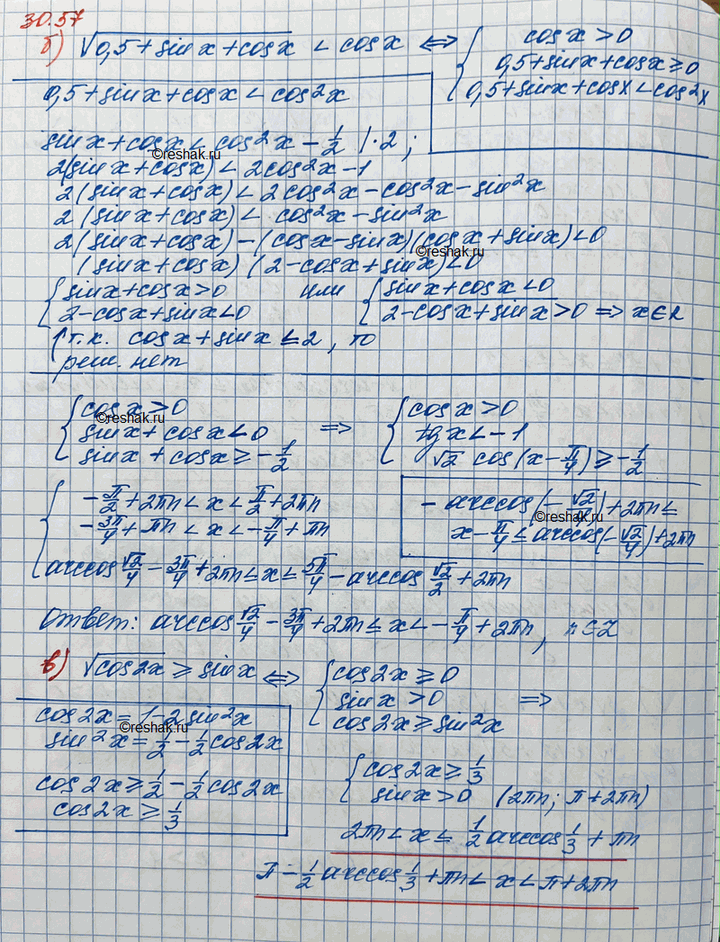 30.57
б) √(0,5+sinx+cosx) < cosx ⇔ { cosx>0
0,5+sinx+cosx≥0
0,5+sinx+cosx<cos²x
0,5+sinx+cosx<cos²x
sinx+cosx<cos²x-1/2 |·2;
©reshak.ru
2(sinx+cosx)<2cos²x-1
2(sinx+cosx)<2cos²x-cos²x-sin²x
2(sinx+cosx)<cos²x-sin²x
2(sinx+cosx)-(cosx-sinx)(cosx+sinx)<0
©reshak.ru
(sinx+cosx)(2-cosx+sinx)<0
{ sinx+cosx>0 или { sinx+cosx<0
2-cosx+sinx<0 2-cosx+sinx>0 ⇒ x∈R
↑ т.к. cosx+sinx≤2, то
реш. нет
{ cosx>0 ⇒ { cosx>0
©reshak.ru
sinx+cosx<0 tgx<-1
sinx+cosx≥-1/2 √2 cos(x-π/4)≥-1/2
{ -π/2+2πn<x<π/2+2πn
-3π/4+πn<x<-π/4+πn
-arccos(-√2/4)+2πn≤
©reshak.ru
x-π/4≤arccos(-√2/4)+2πn
arccos √2/4-3π/4+2πn≤x≤5π/4-arccos √2/2+2πn
Ответ: arccos √2/4-3π/4+2πn≤x<-π/4+2πn, n∈Z
в) √cos2x ≥ sinx ⇔ { cos2x≥0
sinx>0 ⇒
cos2x≥sin²x
cos2x=1-2sin²x
©reshak.ru
sin²x=1/2-1/2cos2x
cos2x≥1/2-1/2cos2x
cos2x≥1/3
{ cos2x≥1/3
sinx>0 (2πn; π+2πn)
2πn<x≤1/2 arccos 1/3+πn
π-1/2 arccos 1/3+πn<x<π+2πn